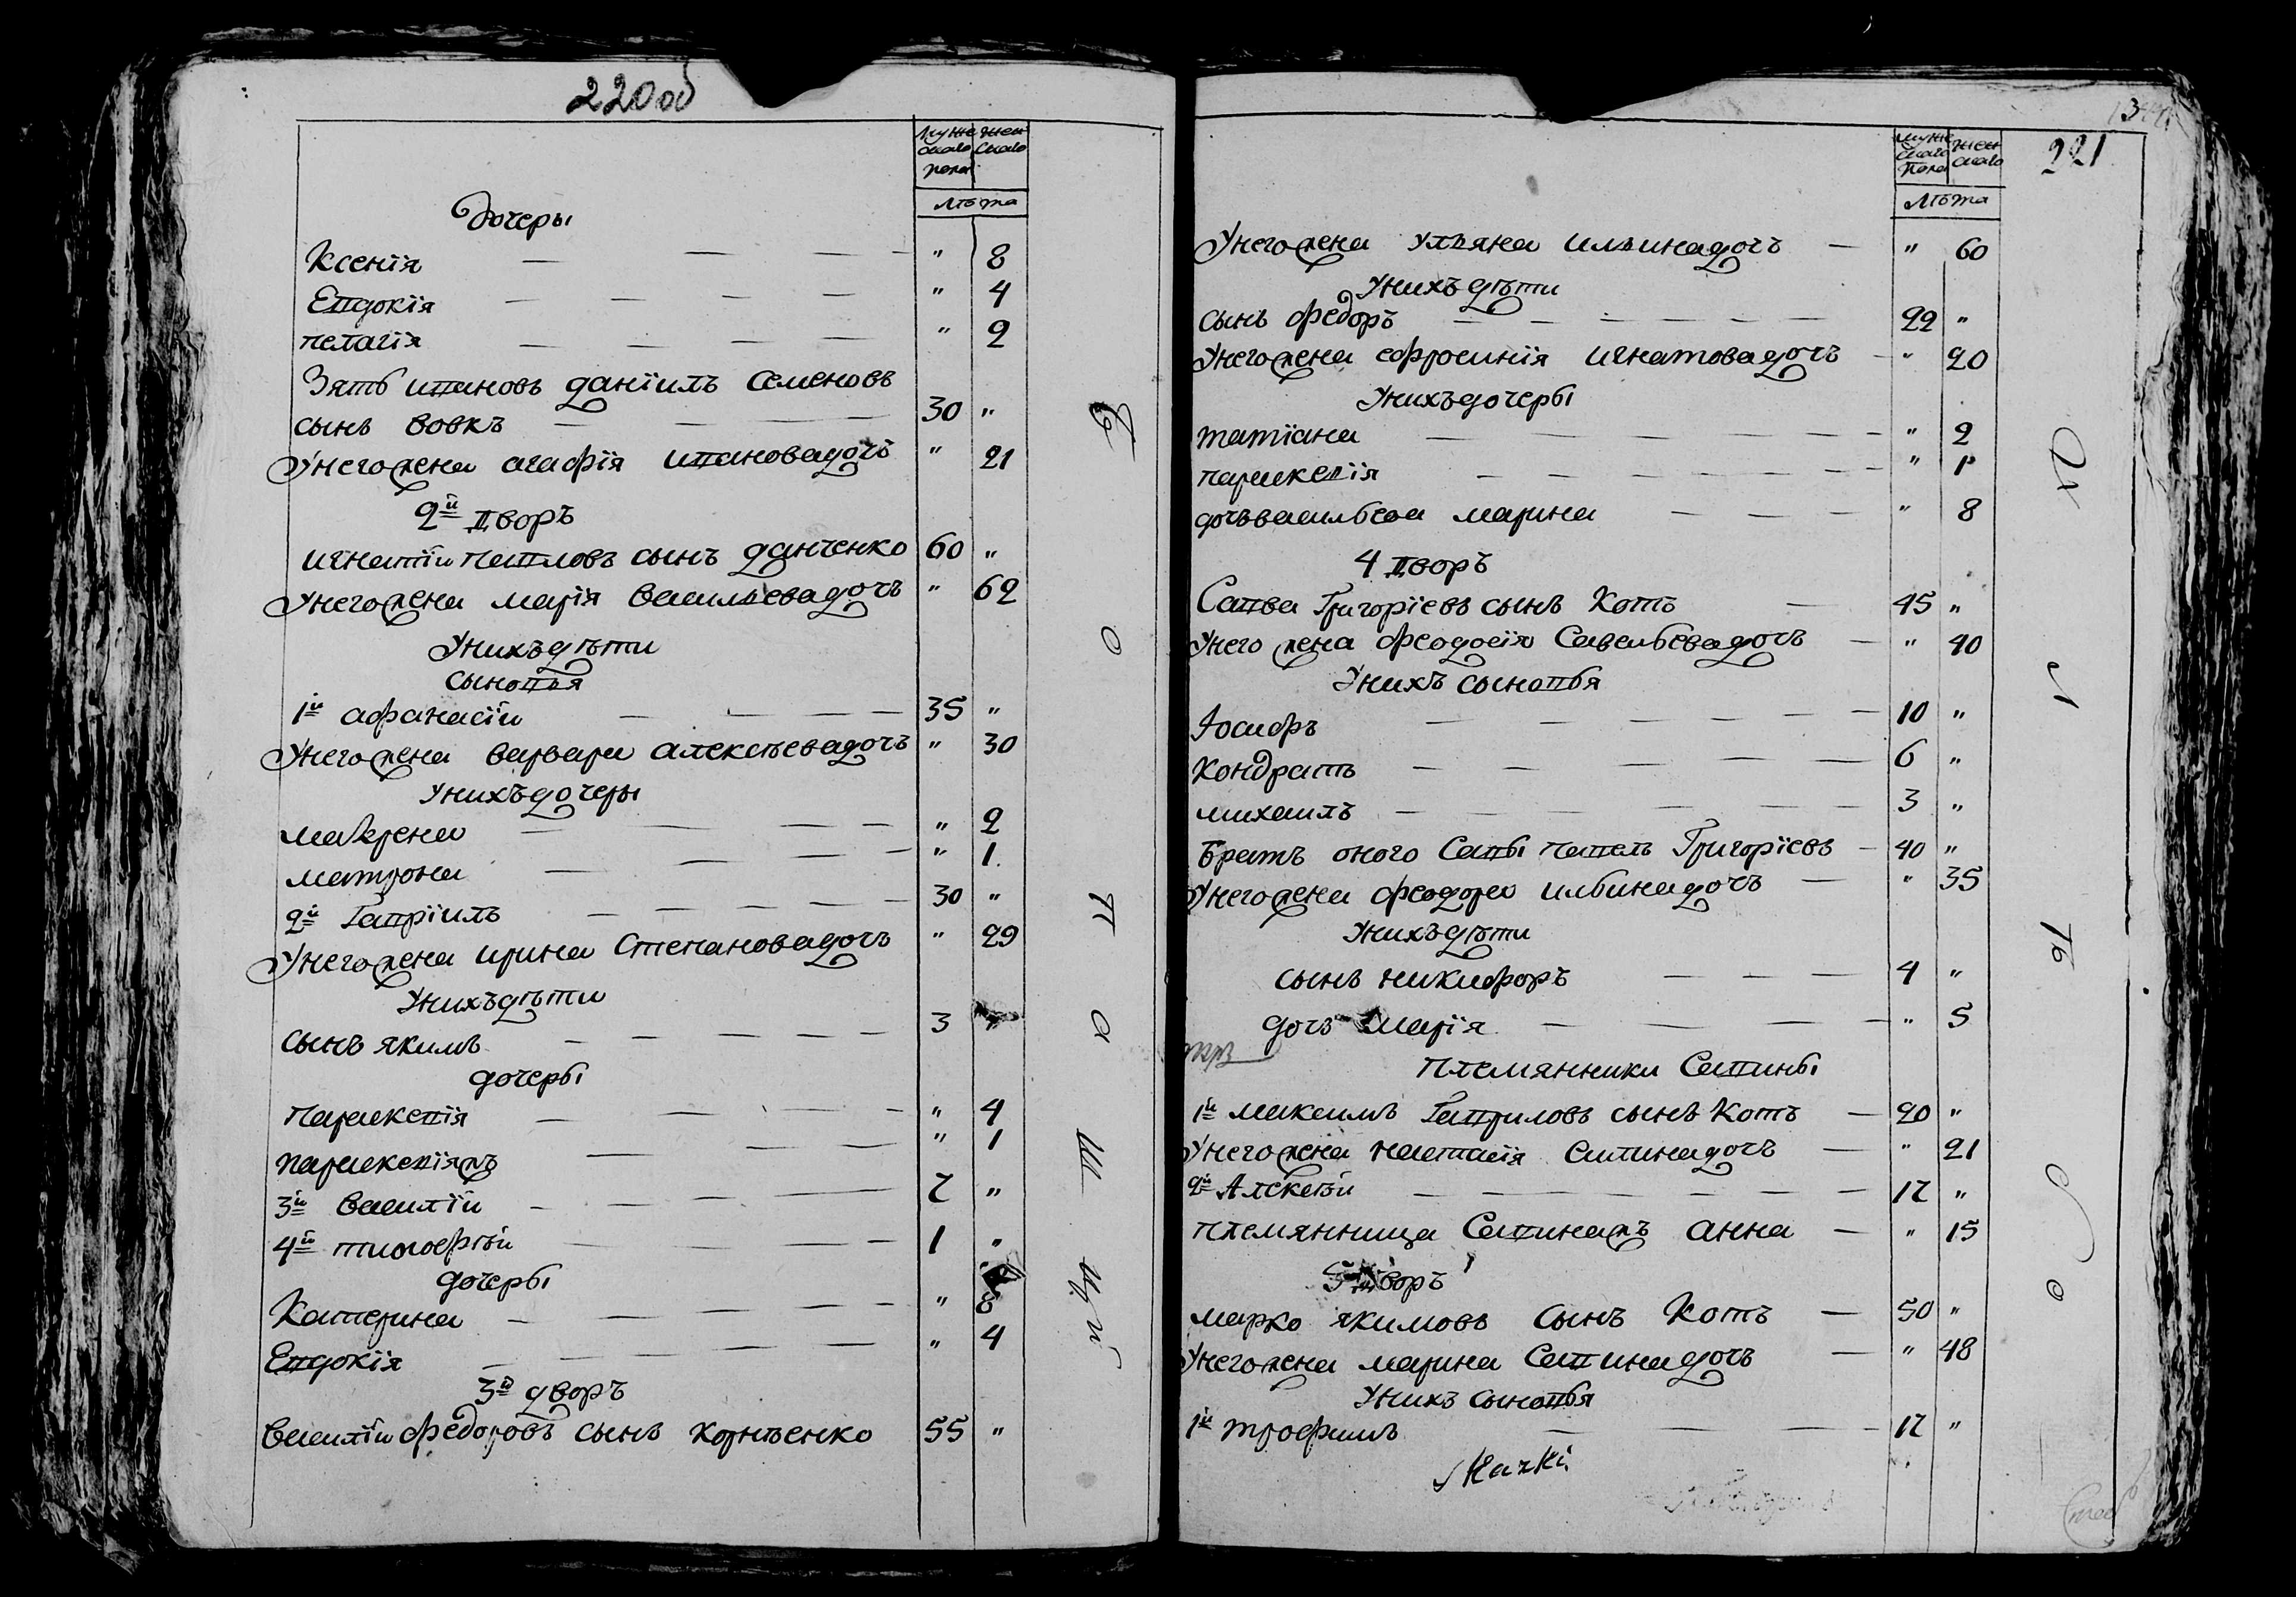 220 об
муже женскаго скаго
пола
лѣта
Дочеры
Ксенія " 8
Евдокія " 4
пелагія " 2
Зять ивановъ даніилъ Семеновъ
сынъ вовкъ 30 "
Унегожена агафія ивановадочъ " 21
2й дворъ
игнатій павловъ сынъ данченко 60 "
Унегожена марія васильевадочъ " 62
Унихъ дѣти
сыновья
1й афанасій 35 "
Унегожена варвара алексѣевадочъ " 30
Унихъ дочеры
макрена " 2
матрона " 1
2й Гавріилъ 30 "
Унегожена ирина Степановадочъ " 29
Унихъ дѣти
сынъ якимъ 3 "
дочеры
параскевія " 4
параскевіяжъ " 1
3й василій 7 "
4й тимофѣй 1 "
дочеры
Катерина " 8
Евдокія " 4
3й дворъ
василій федоровъ сынъ корнѣенко 55 "
221
муже женскаго скаго
пола
лѣта
Унегожена ульяна ильинадочъ " 60
Унихъ дѣти
сынъ федоръ 22 "
Унегожена ефросинія игнатовадочъ " 20
Унихъ дочеры
татіана " 2
параскевія " 1
дочъ васильева марина " 8
4 дворъ
Савва Григоріевъ сынъ Котъ 45 "
Унего жена феодосія Савельевадочъ " 40
Унихъ сыновья
Іосифъ 10 "
Кондратъ 6 "
михаилъ 3 "
Братъ оного Савы павелъ Григоріевъ 40 "
Унегожена феодора ильинадочъ " 35
Унихъ дѣти
сынъ никифоръ 4 "
дочъ марія " 5
племянники Савины
1й максимъ Гавриловъ сынъ Котъ 20 "
Унегожена настасія савинадочъ " 21
2й Алексѣй 17 "
племянница Савинажъ анна " 15
5 дворъ
марко якимовъ сынъ Котъ 50 "
Унегожена марина Савинадочъ " 48
Унихъ сыновья
1й трофимъ 17 "